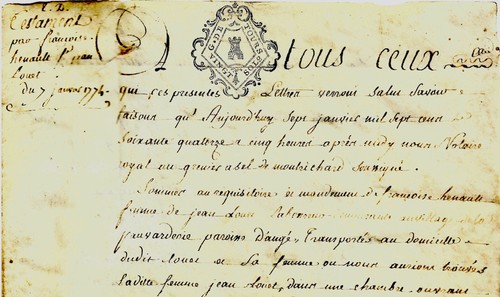 Testament
par françoise
henault fe jean
Louet
du 7 janvier 177
G. DE TOURS
VINGT
A tous ceux
qui ces presentes Lettres verront salut savoir
faisons qu'Aujourd'huy sept janvier mil sept cens
soixante quatorze a cinq heures après midy nous Notaire
royal au grenier a sel de montrichard soussigné
Sommes au requisitoire et mandement de françoise henault
femme de jean Louet
paroisse d'angé, Transportés au domicille
dudit Louet et sa femme ou nous aurions trouvés
Laditte femme jean Louet, dans une chambre